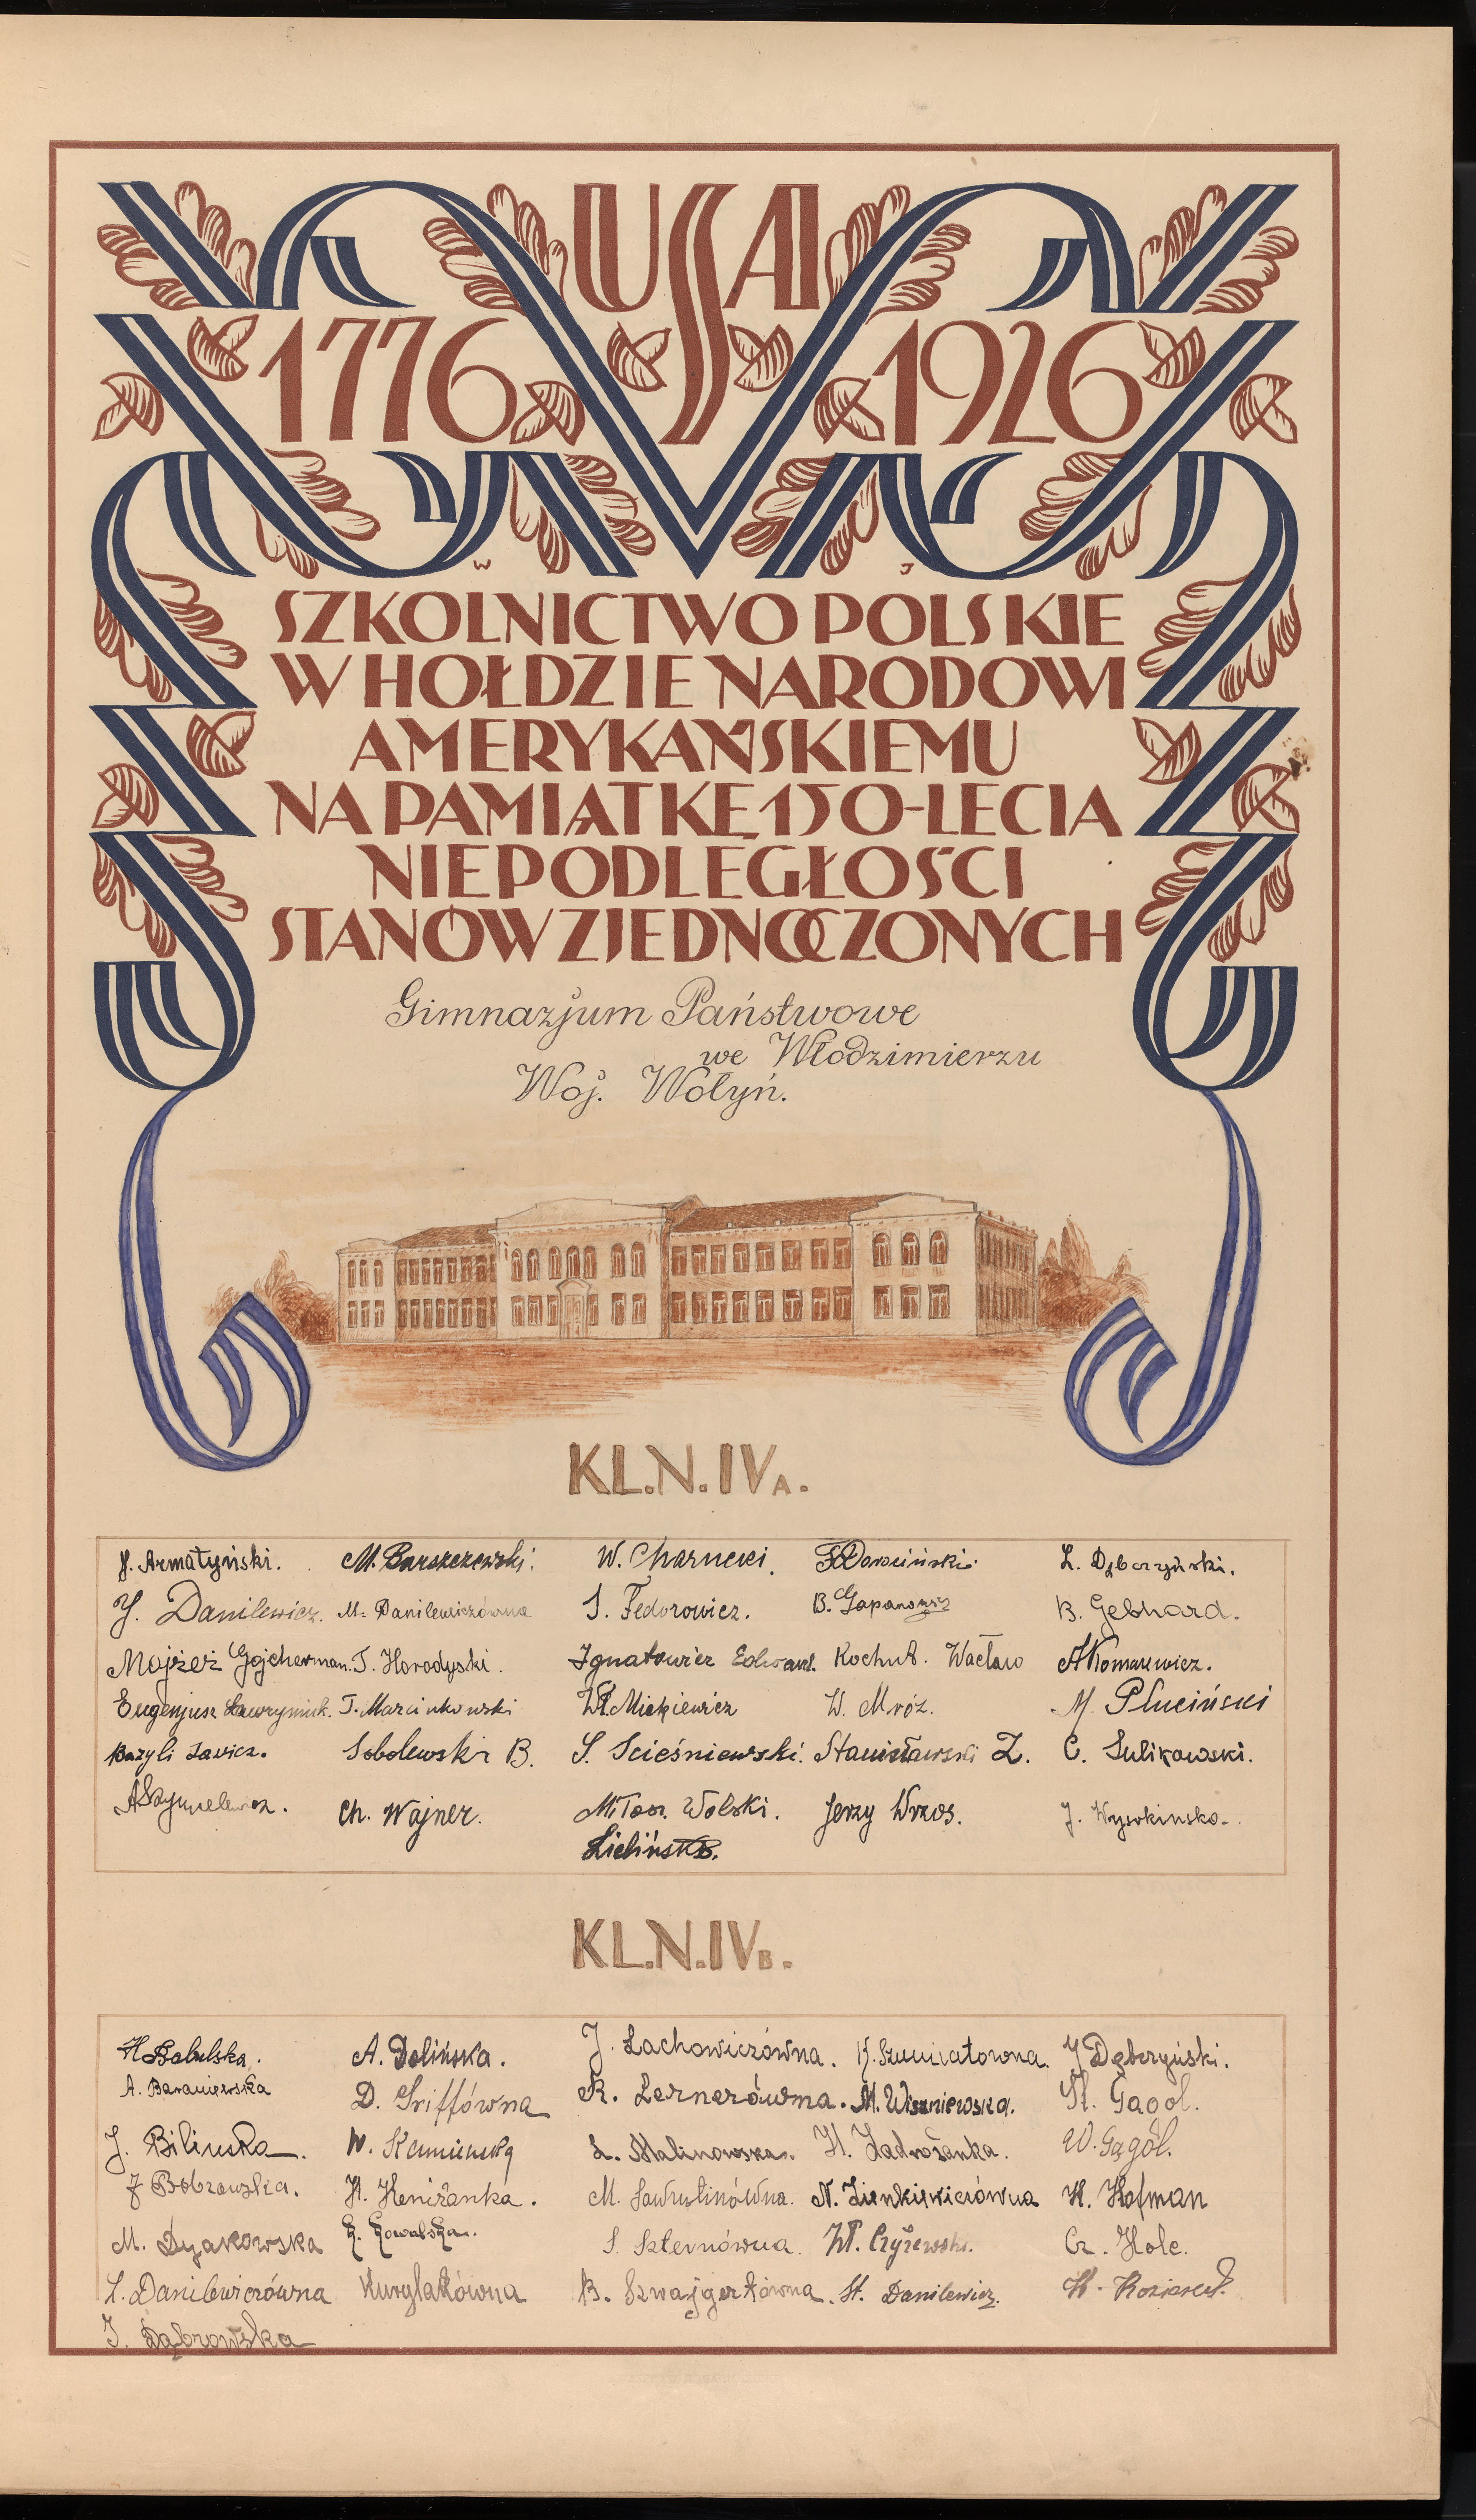 USA
1776 1926
W J
SZKOLNICTWO POLSKIE
W HOŁDZIE NARODOWI
AMERYKAŃSKIEMU
NA PAMIĄTKĘ 150-LECIA
NIEPODLEGŁOŚCI
STANÓW ZJEDNOCZONYCH
Gimnazjum Państwowe
we Włodzimierzu
Woj. Wołyń.
KL.N.IVA.
J. Armatyński. M. Barszczewski. W. Charnecki. Dorociński. L. Dębczyński.
J. Danilewicz. M. Danilewiczówna J. Fedorowicz. B. Gapanowicz B. Gebhard.
Mojżesz Gojcherman. T. Horodyski. Ignatowicz Edward. Kochut. Wacław A Komarewicz.
Eugenjusz Ławrymiuk. T. Marcinkowski Wł. Mickiewicz W. Mróz. M. Pluciński
Bazyli Sawicz. Sobolewski B. S. Scieśniewski. Stanisławski Z. C. Sulikowski.
A Szymelewicz. Ch. Wajner. Miłosz Wolski. Jerzy Wrzos. J. Wysokińsko.
Zieliński B.
KL.N.IVB.
H Babulska. A. Dolińska. J. Lachowiczówna. Szumiatowna. J Dębczyński.
A. Baraniewska D. Griffówna R. Lernerówna. M. Wiszniewska. St. Gągol.
J. Bilińska. W. Kamieńska L. Malinowska. H. Zadrożanka. W. Gągol.
J Bobrowska. H. Kenizanka. M. Sawulinówna. N. Zienkiewiczówna H. Hofman
M. Dyakowska Z. Kowalska. S. Szternówna. Wł. Czyżewski. Cz. Hole.
L. Danilewiczówna Kurylakówna B. Szwajgerówna. St. Danilewicz. H.
J. Dąbrowska